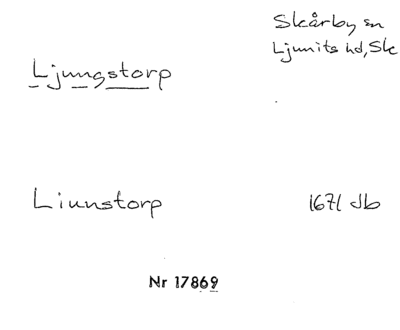 Skårby sn
Ljunits hd, Sk
Ljungstorp
Liunstorp
1671 Jb
Nr 17869